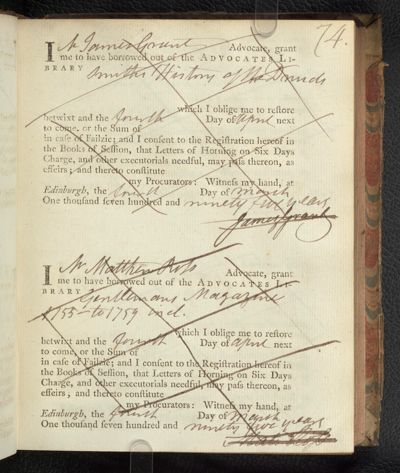 74.
I Mr James Grant Advocate, grant
me to have borrowed out of the ADVOCATES LI-
BRARY Smiths History of the Druids
which I oblige me to restore
betwixt and the fourth Day of April next
to come, or the Sum of
in case of Failzie; and I consent to the Registration hereof in
the Books of Session, that Letters of Horning on Six Days
Charge, and other executorials needful, may pass thereon, as
effeirs; and thereto constitute
my Procurators: Witness my hand, at
Edinburgh, the fourth Day of March
One thousand seven hundred and ninety five years
James Grant
I Mr Matthew Ross Advocate, grant
me to have borrowed out of the ADVOCATES LI-
BRARY Gentlemans Magazine
1755 to 1759 incl.
which I oblige me to restore
betwixt and the fourth Day of April next
to come, or the Sum of
in case of Failzie; and I consent to the Registration hereof in
the Books of Session, that Letters of Horning on Six Days
Charge, and other executorials needful, may pass thereon, as
effeirs; and thereto constitute
my Procurators: Witness my hand, at
Edinburgh, the fourth Day of March
One thousand seven hundred and ninety five years